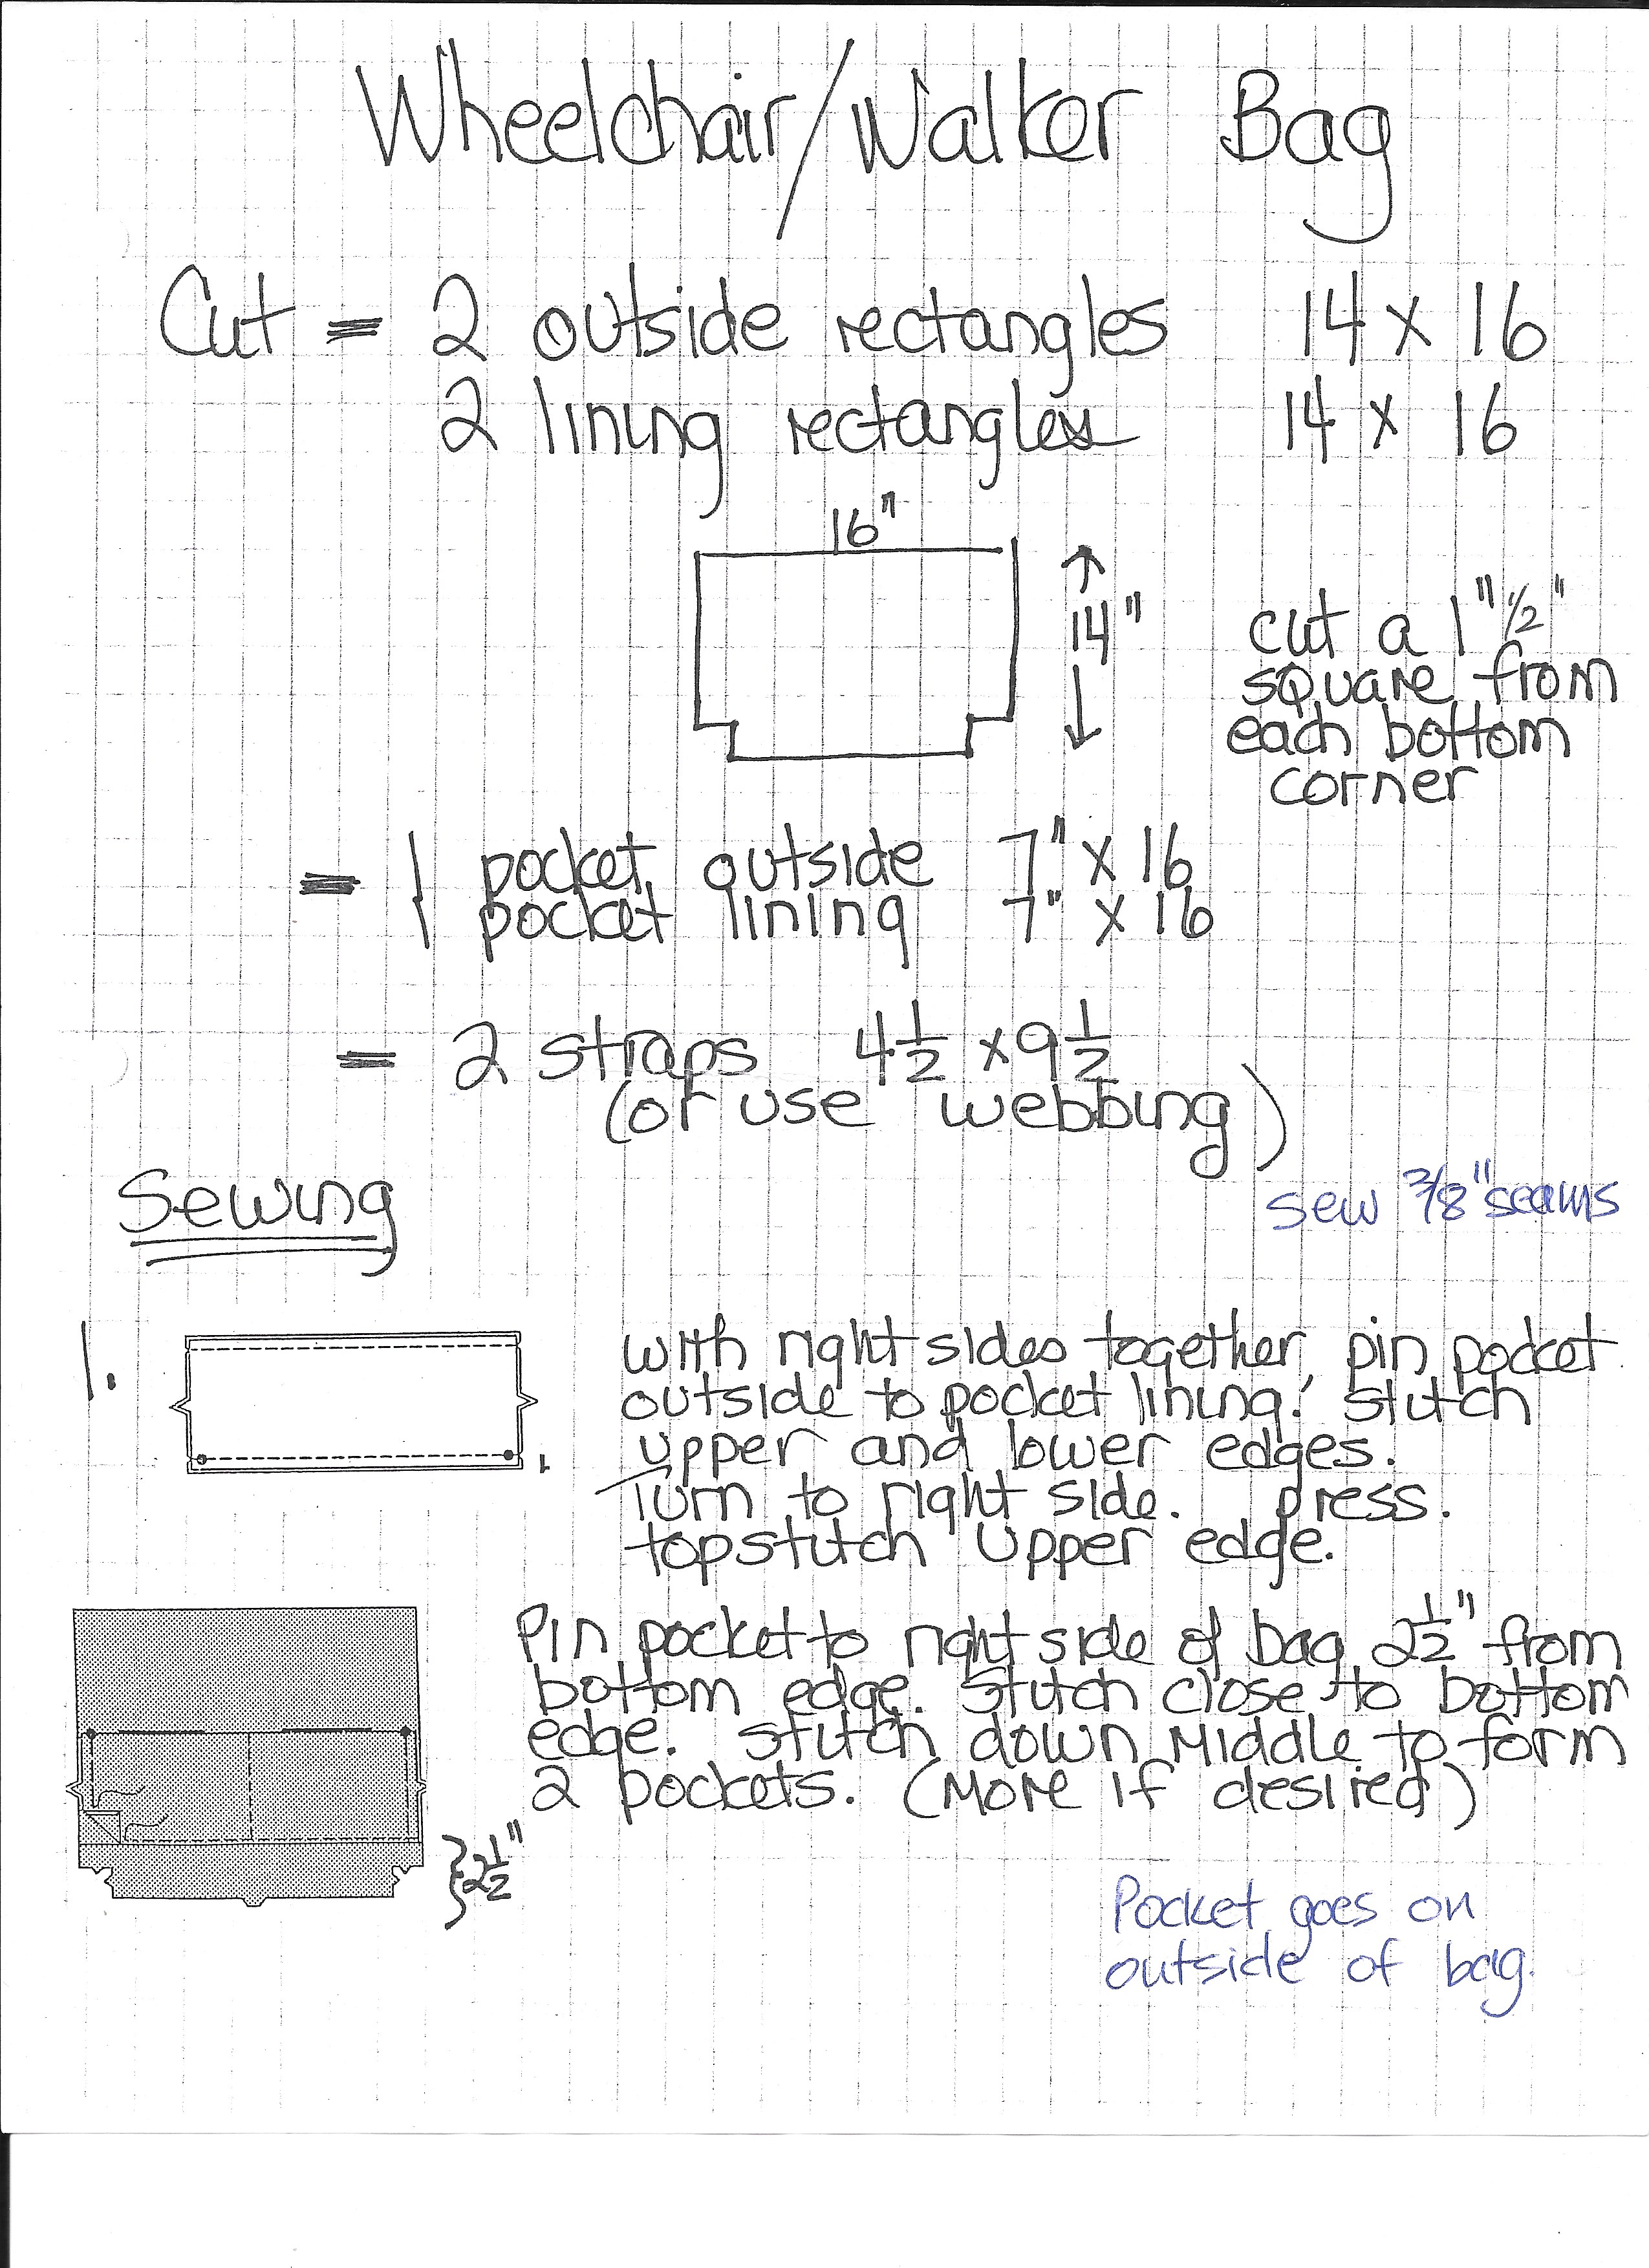 Wheelchair/Walker Bag
Cut = 2 outside rectangles 14 x 16
2 lining rectangles 14 x 16
16"
14"
cut a 1" 1/2"
square from
each bottom
corner
= 1 pocket outside 7" x 16
1 pocket lining 7" x 16
= 2 straps 4 1/2 x 9 1/2
(or use webbing)
Sewing
sew 3/8" seams
1. with right sides together, pin pocket
outside to pocket lining. Stitch
upper and lower edges.
Turn to right side. press.
topstitch upper edge.
Pin pocket to right side of bag 2 1/2" from
bottom edge. Stitch close to bottom
edge. Stitch down Middle to form
2 pockets. (More if desired)
2 1/2"
Pocket goes on
outside of bag.